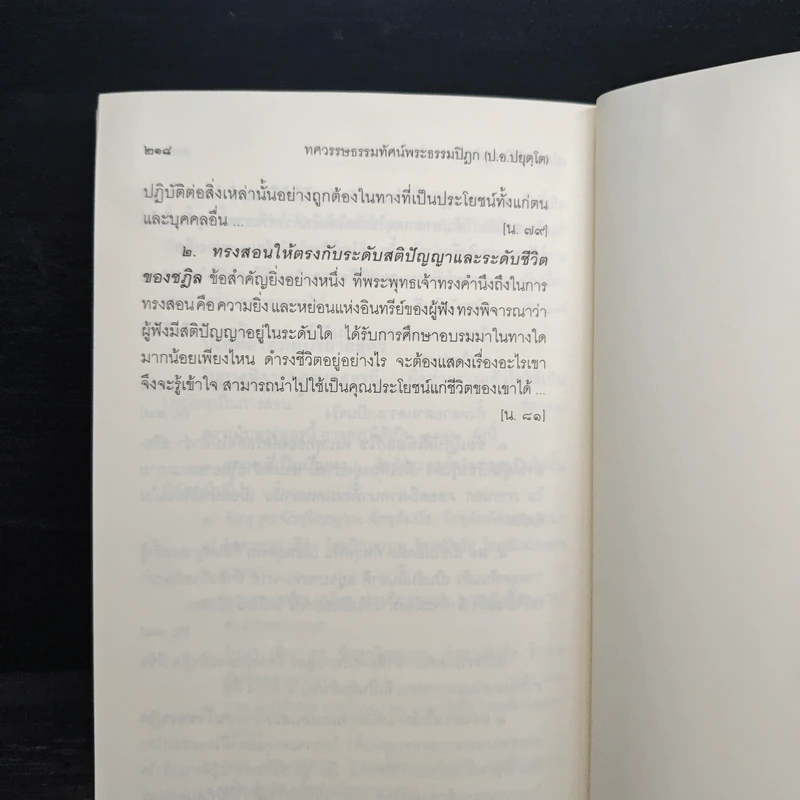 ๒๑๘
ทศวรรษธรรมทัศน์พระธรรมปิฎก (ป.อ.ปยุตฺโต)
ปฏิบัติต่อสิ่งเหล่านั้นอย่างถูกต้องในทางที่เป็นประโยชน์ทั้งแก่ตน
และบุคคลอื่น ... [น. ๗๙]
๒. ทรงสอนให้ตรงกับระดับสติปัญญาและระดับชีวิต
ของชฎิล ข้อสำคัญยิ่งอย่างหนึ่ง ที่พระพุทธเจ้าทรงคำนึงถึงในการ
ทรงสอน คือ ความยิ่ง และหย่อนแห่งอินทรีย์ของผู้ฟัง ทรงพิจารณาว่า
ผู้ฟังมีสติปัญญาอยู่ในระดับใด ได้รับการศึกษาอบรมมาในทางใด
มากน้อยเพียงไหน ดำรงชีวิตอยู่อย่างไร จะต้องแสดงเรื่องอะไรเขา
จึงจะรู้เข้าใจ สามารถนำไปใช้เป็นคุณประโยชน์แก่ชีวิตของเขาได้ ...
[น. ๘๑]